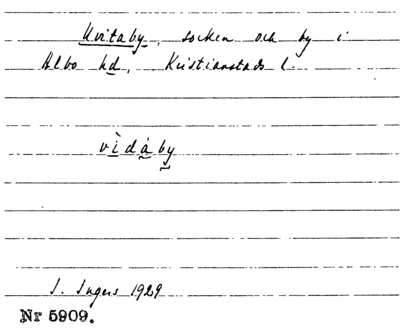 Hvitaby, socken och by i
Albo hd, Kristianstads l.
vìdȧby
I. Ingers 1929
Nr 5909.